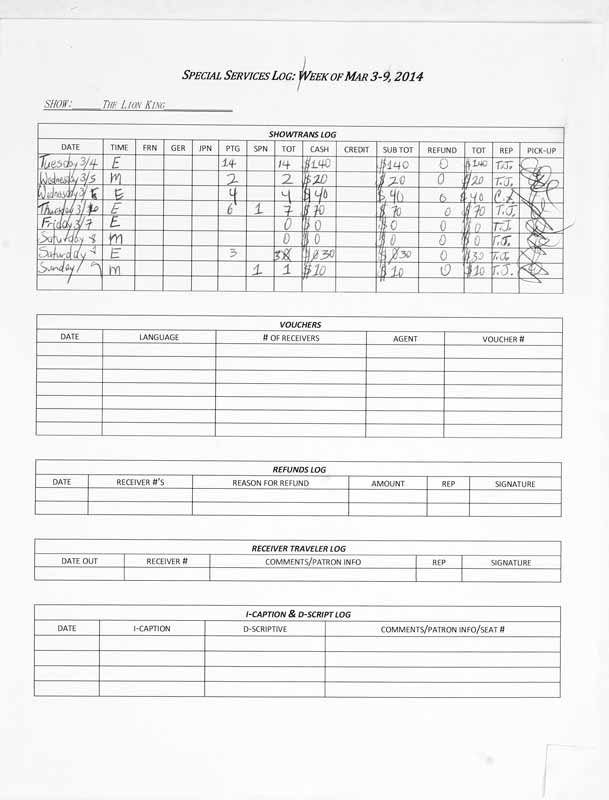 SPECIAL SERVICES LOG: WEEK OF MAR 3-9, 2014
SHOW: THE LION KING
SHOWTRANS LOG
DATE TIME FRN GER JPN PTG SPN TOT CASH CREDIT SUB TOT REFUND TOT REP PICK-UP
Tuesday 3/4 E 14 14 $140 $140 0 $140 T.J.
Wednesday 3/5 M 2 2 $20 $20 0 $20 T.J.
Wednesday 3/5 E 4 4 $40 $40 0 $40
Thursday 3/ E 6 1 7 $70 $70 0 $70 T.J.
Friday 3/7 E 0 $0 $0 0 $0 T.J.
Saturday 8 M 0 $0 $0 0 $0 T.J.
Saturday E 3 3 $30 $30 0 $30 T.J.
Sunday 9 M 1 1 $10 $10 0 $10 T.J.
VOUCHERS
DATE LANGUAGE # OF RECEIVERS AGENT VOUCHER #
REFUNDS LOG
DATE RECEIVER #'S REASON FOR REFUND AMOUNT REP SIGNATURE
RECEIVER TRAVELER LOG
DATE OUT RECEIVER # COMMENTS/PATRON INFO REP SIGNATURE
I-CAPTION & D-SCRIPT LOG
DATE I-CAPTION D-SCRIPTIVE COMMENTS/PATRON INFO/SEAT #